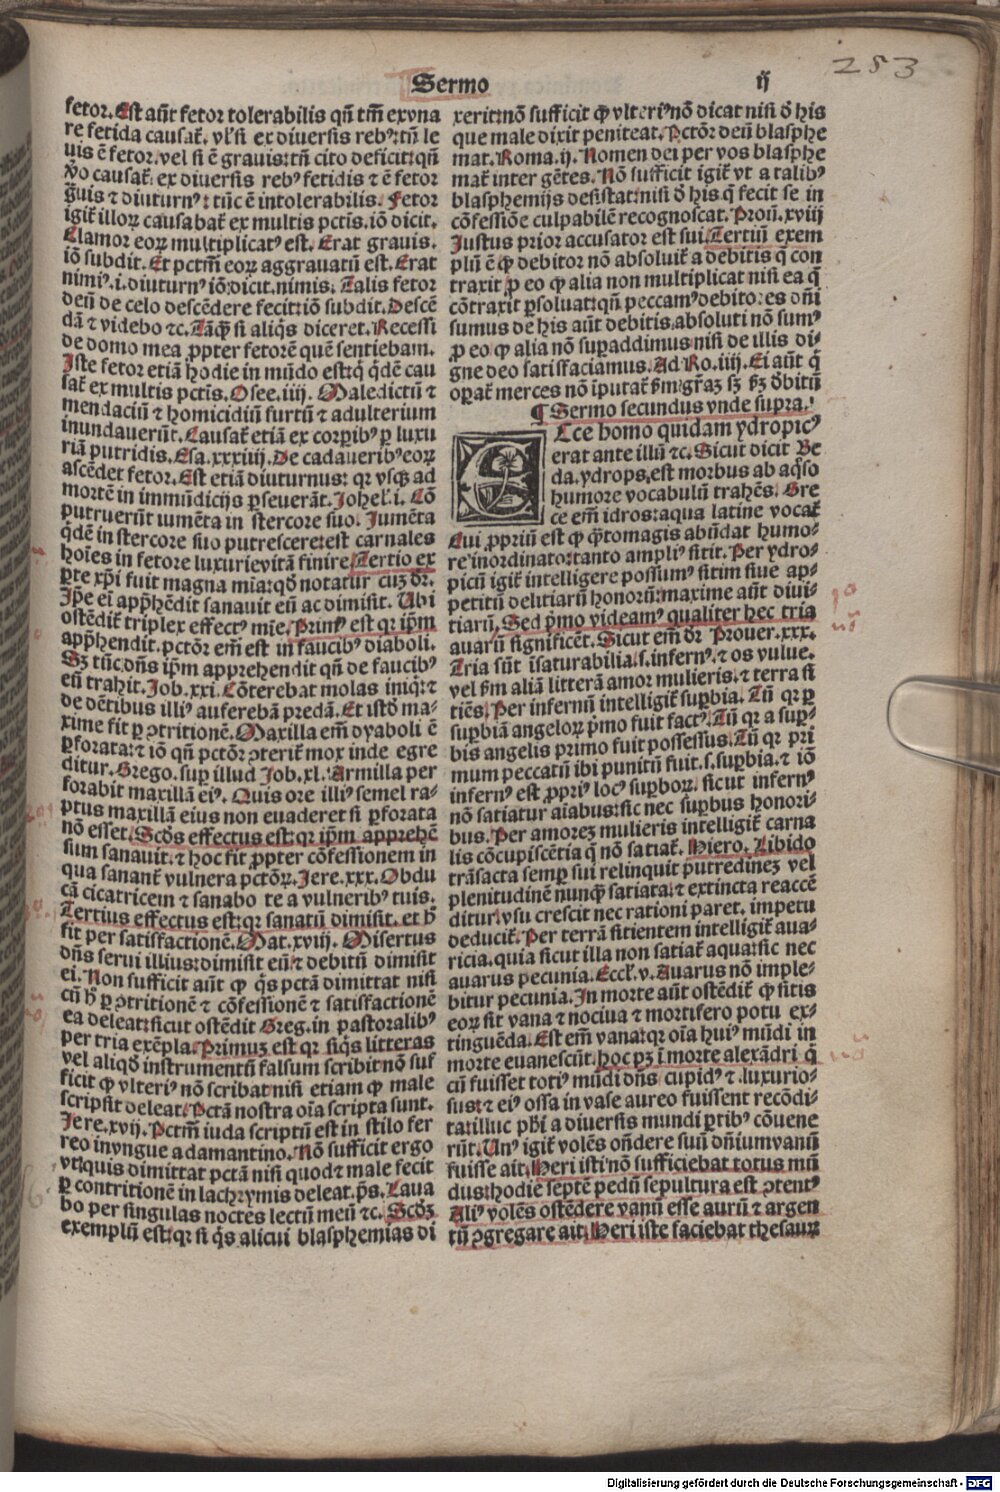 Sermo ij
283
fetor. Est aūt fetor tolerabilis qn̄ tm̄ ex vna
re fetida causaꝉ. vl' si ex diuersis rebꝰ: tn̄ le
uis ē fetor. vel si ē grauis: tn̄ cito deficit: qn̄
v̊o causaꝉ ex diuersis rebꝰ fetidis ⁊ ē fetor
g̃uis ⁊ diuturnꝰ: tūc ē intolerabilis. Fetor
igiꝉ illoꝝ causabaꝉ ex multis pctīs. iō dicit.
Clamor eoꝝ multiplicatꝰ est. Erat grauis.
iō subdit. Et pctm̄ eoꝝ aggrauatū est. Erat
nimiꝰ. i. diuturnꝰ iō: dicit. nimis. Talis fetor
deū de celo descēdere fecit: iō subdit. Descē
dā ⁊ videbo ⁊c. Tāqꝫ si aliq̊s diceret. Recessi
de domo mea ꝓpter fetorē quē sentiebam.
Iste fetor etiā hodie in mūdo est: q̇ q̇dē cau
saꝉ ex multis pctīs. Osee. iiij. Maledictū ⁊
mendaciū ⁊ homicidiū furtū ⁊ adulterium
inundauerūt. Causaꝉ etiā ex corꝑibꝰ ꝑ luxu
riā putridis. Esa. xxxiiij. De cadaueribꝰ eoꝝ
ascēdet fetor. Est etiā diuturnus: qr vsqꝫ ad
mortē in immūdicijs ꝑseuerāt. Johel'. i. Cō
putruerūt iumēta in stercore suo. Jumēta
q̇dē in stercore suo putrescere: est carnales
hoīes in fetore luxurie vitā finire. Tertio ex
ꝑte xp̄i fuit magna mīa: qd̄ notatur cuꝫ dr̄.
Ip̄e ei app̃hēdit sanauit eū ac dimisit. Ubi
ostēdiꝉ triplex effectꝰ mīe. Primꝰ est qr ip̄m
app̃hendit. pctōr em̄ est in faucibꝰ diaboli.
Sꝫ tūc dn̄s ip̄m apprehendit qn̄ de faucibꝰ
eū trahit. Job. xxi. Cōterebat molas iniq̇: ⁊
de dētibus illiꝰ auferebā predā. Et istd̄ ma⸗
xime fit ꝑ ꝯtritionē. Maxilla em̄ dyaboli ē
ꝑforata: ⁊ iō qn̄ pctōr ꝯteriꝉ mox inde egre
ditur. Grego. suꝑ illud Job. xl. Armilla per
forabit maxillā eiꝰ. Quis ore illiꝰ semel ra⸗
ptus maxillā eius non euaderet si ꝑforata
nō esset. Scd̄s effectus est: qr ip̄m apprehē
sum sanauit. ⁊ hoc fit ꝓpter cōfessionem in
qua sananꝉ vulnera pctōꝝ. Jere. xxx. Obdu
cā cicatricem ⁊ sanabo te a vulneribꝰ tuis.
Tertius effectus est: qr sanatū dimisit. et h̄
fit per satisfactionē. Mat. xviij. Misertus
dn̄s serui illius: dimisit eū: ⁊ debitū dimisit
ei. Non sufficit aūt ꝙ q̊s pctā dimittat nisi
cū h̄ ꝑ ꝯtritionē ⁊ cōfessionē ⁊ satisfactionē
ea deleat: sicut ostēdit Greg. in pastoralibꝰ
per tria exēpla. Primuꝫ est qr siq̊s litteras
vel aliqd̄ instrumentū falsum scribit nō suf
ficit ꝙ vlteriꝰ nō scribat nisi etiam ꝙ male
scripsit deleat. Pctā nostra oīa scripta sunt.
Jere. xvij. Pctm̄ iuda scriptū est in stilo fer
reo in vngue adamantino. Nō sufficit ergo
vt quis dimittat pctā nisi quod ⁊ male fecit
ꝑ contritionē in lachrymis deleat. p̄s. Laua
bo per singulas noctes lectū meū ⁊c. Scd̄ꝫ
exemplū est: qr si q̊s alicui blasphemias di
xerit: nō sufficit ꝙ vlteriꝰ nō dicat nisi d̄ his
que male dixit peniteat. Pctōr deū blasphe
mat. Roma. ij. Nomen dei per vos blasphe
maꝉ inter gētes. Nō sufficit igiꝉ vt a talibꝰ
blasphemijs desistat: nisi d̄ his q̄ fecit se in
cōfessiōe culpabilē recognoscat. Prou. xviij
Justus prior accusator est sui. Tertiū exem
plū ē ꝙ debitor nō absoluiꝉ a debitis q̄ con
traxit ꝑ eo ꝙ alia non multiplicat nisi ea q̄
cōtraxit ꝑsoluat: qn̄ peccamꝰ debitores dn̄i
sumus de his aūt debitis absoluti nō sumꝰ
ꝓ eo ꝙ alia nō suꝑaddimus nisi de illis di⸗
gne deo satisfaciamus. Ad Ro. iiij. Ei aūt q̇
oꝑaꝉ merces nō īputaꝉ ẜm gr̄aꝫ sꝫ ẜꝫ d̄bitū
¶ Sermo secundus vnde supra.
Ecce homo quidam ydropicꝰ
erat ante illū ⁊c. Sicut dicit Be
da. ydrops, est morbus ab aq̊so
humore vocabulū trahēs. Gre
ce em̄ idros: aqua latine vocaꝉ
Cui ꝓpriū est ꝙ q̇to magis abūdat humo⸗
re inordinato: tanto ampliꝰ sitit. Per ydro⸗
picū igiꝉ intelligere possumꝰ sitim siue ap⸗
petitū delitiarū honorū: maxime aūt diui⸗
tiarū. Sed p̄mo videamꝰ qualiter hec tria
auarū significēt. Sicut em̄ dr̄ Prouer. xxx.
Tria sūt īsaturabilia. s. infernꝰ. ⁊ os vulue.
vel ẜm aliā litterā amor mulieris. ⁊ terra si
tiēs. Per infernū intelligiꝉ suꝑbia. Tū qr ꝑ
suꝑbiā angeloꝝ p̄mo fuit factꝰ. Tū qr a suꝑ⸗
bis angelis primo fuit possessus. Tū qr pri
mum peccatū ibi punitū fuit. s. suꝑbia. ⁊ iō
infernꝰ est ꝓpriꝰ locꝰ suꝑboꝝ. sicut infernꝰ
nō satiatur aīabus: sic nec suꝑbus honori⸗
bus. Per amoreꝫ mulieris intelligiꝉ carna
lis cōcupiscētia q̄ nō satiaꝉ. Hiero. Libido
trāsacta semꝑ sui relinquit putredineꝫ vel
plenitudinē nunq̄ satiata: ⁊ extincta reaccē
ditur. vsu crescit nec rationi paret. impetu
deduciꝉ. Per terrā sitientem intelligiꝉ aua⸗
ricia. quia sicut illa non satiaꝉ aqua: sic nec
auarus pecunia. Eccl'. v. Auarus nō imple⸗
bitur pecunia. In morte aūt ostēdiꝉ ꝙ sitis
eoꝝ sit vana ⁊ nociua ⁊ mortifero potu ex⸗
tinguēda. Est em̄ vana: qr oīa huiꝰ mūdi in
morte euanescūt. hoc pꝫ ī morte alexādri q̇
cū fuisset totiꝰ mūdi dn̄s cupidꝰ ⁊ luxurio⸗
sus: ⁊ eiꝰ ossa in vase aureo fuissent recōdi⸗
ta: illuc ph̄i a diuersis mundi ꝑtibꝰ cōuene
rūt. Unꝰ igiꝉ volēs on̄dere suū dn̄ium vanū
fuisse ait. Heri isti nō sufficiebat totus mū
dus: hodie septē pedū sepultura est ꝯtentꝰ
Aliꝰ volēs ostēdere vanū esse aurū ⁊ argen
tū ꝯgregare ait. Heri iste faciebat thesauꝝ
Digitalisierung gefördert durch die Deutsche Forschungsgemeinschaft - DFG